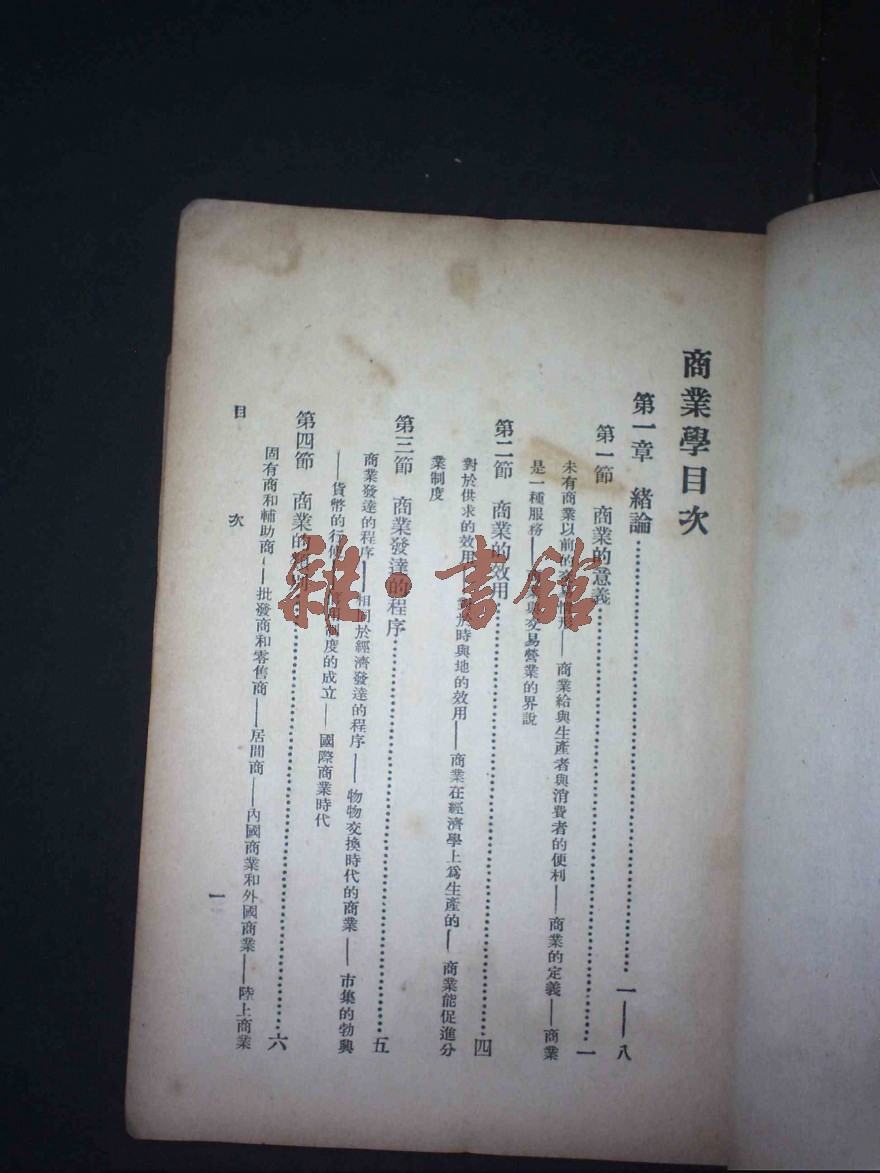 商業學目次
第一章 緒論⋯⋯一——八
第一節 商業的意義⋯⋯一
未有商業以前的 情形——商業給與生產者與消費者的便利——商業的定義——商業
是一種服務—— 與交易營業的界說
第二節 商業的效用⋯⋯四
對於供求的效用 對於時與地的效用——商業在經濟學上爲生產的——商業能促進分
業制度
第三節 商業發達的程序⋯⋯五
商業發達的程序——相同於經濟發達的程序——物物交換時代的商業——市集的勃興
——貨幣的行使 制度的成立——國際商業時代
第四節 商業的 ⋯⋯六
固有商和輔助商——批發商和零售商——居間商——內國商業和外國商業——陸上商業
目 次
一
雜·書館